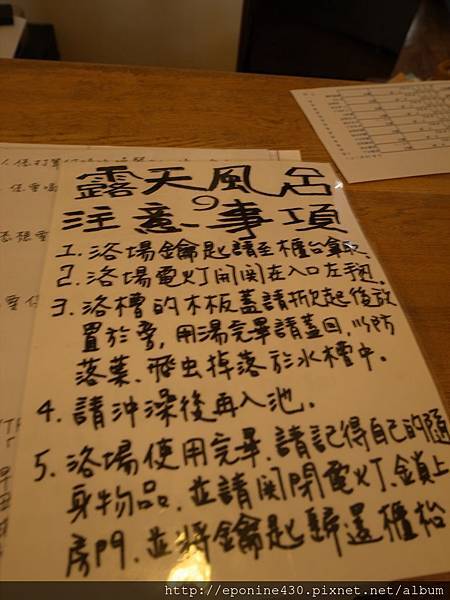 露天風呂
注意事項
1. 浴場鑰匙請至櫃台拿取.
2. 浴場電灯開関在入口左手边.
3. 浴槽的木板蓋請掀起後放
置於旁, 用湯完畢請蓋回, 以防
落葉、飛虫掉落於水槽中。
4. 請沖澡後再入池。
5. 浴場使用完畢, 請記得自己的隨
身物品, 並請関閉電灯、鎖上
房門、並將鑰匙歸還櫃枱
http://eponine430.pixnet.net/album